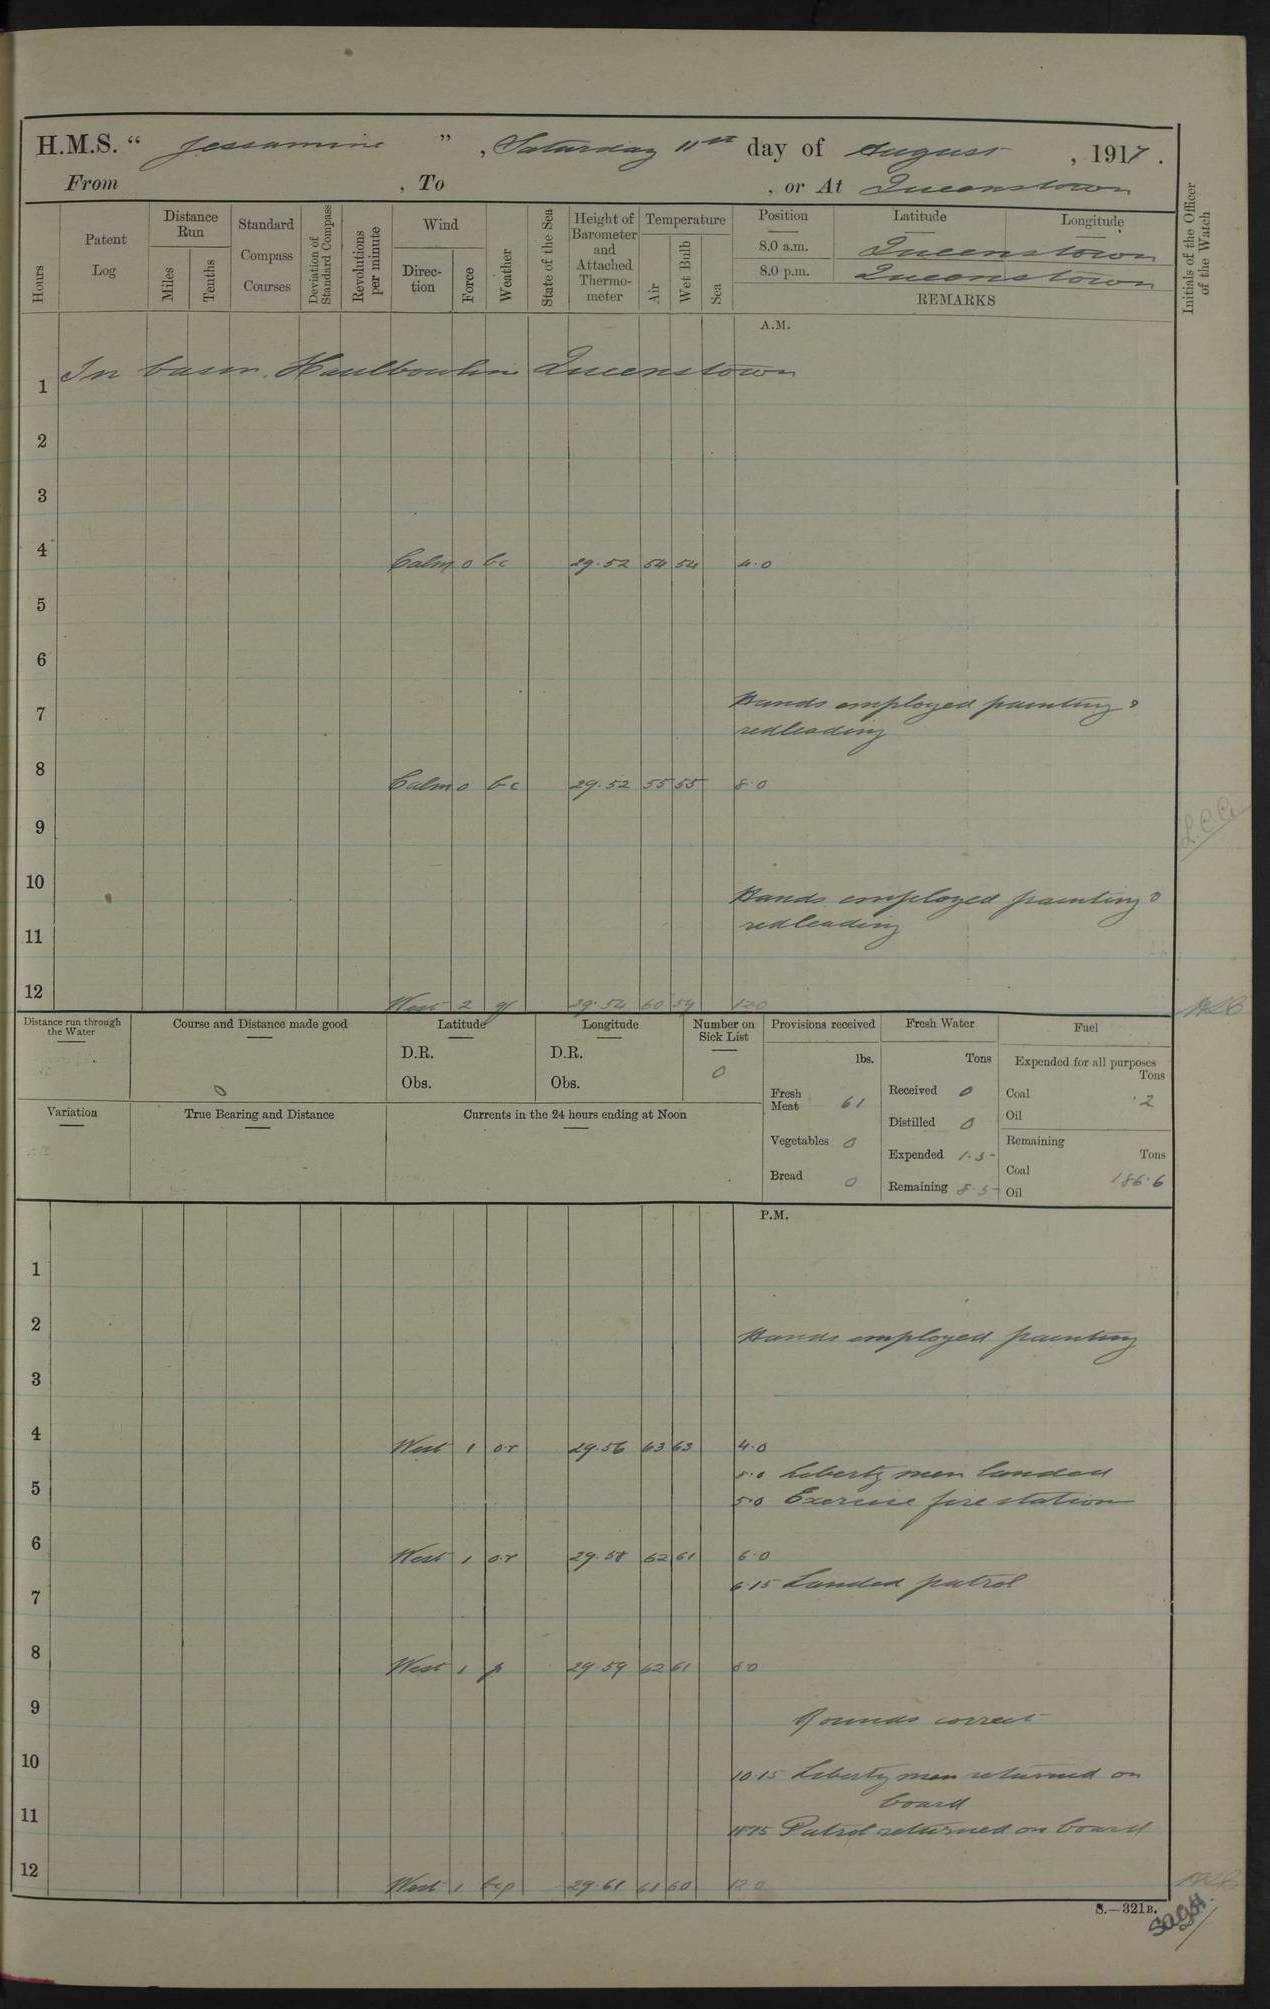 H.M.S. “ Jessamine ”, Saturday 11th day of August, 1917.
From , To , or At Queenstown
Hours
Patent Log
Distance Run
Miles
Tenths
Standard Compass Courses
Deviation of Standard Compass
Revolutions per minute
Wind
Direc-tion
Force
Weather
State of the Sea
Height of Barometer and Attached Thermo-meter
Temperature
Air
Wet Bulb
Sea
Position Latitude Longitude
8.0 a.m. Queenstown
8.0 p.m. Queenstown
REMARKS
Initials of the Officer of the Watch
A.M.
1 In basin Haulbowline Queenstown
2
3
4 Calm 0 bc 29.52 54 54 4.0
5
6
7 Hands employed painting &
redleading
8 Calm 0 bc 29.52 55 55 8.0
9
10 Hands employed painting &
redleading
11
12 West 2 29.54 60 59 12.0
Distance run through the Water
Course and Distance made good
0
Latitude
D.R.
Obs.
Longitude
D.R.
Obs.
Number on Sick List
0
Provisions received
lbs.
Fresh Meat 61
Vegetables 0
Bread 0
Fresh Water
Tons
Received 0
Distilled 0
Expended 1.5
Remaining 8.5
Fuel
Expended for all purposes
Tons
Coal .2
Oil
Remaining
Tons
Coal 186.6
Oil
Variation
True Bearing and Distance
Currents in the 24 hours ending at Noon
P.M.
1
2 Hands employed painting
3
4 West 1 or 29.56 63 63 4.0
5.0 Liberty men landed
5 5.0 Exercise fire station
6 West 1 or 29.58 62 61 6.0
6.15 Landed patrol
7
8 West 1 p 29.59 62 61 8.0
9 Rounds correct
10 10.15 Liberty men returned on
board
11 Patrol returned on board
12 West 1 bcp 29.61 61 60 12.0
S.—321B.